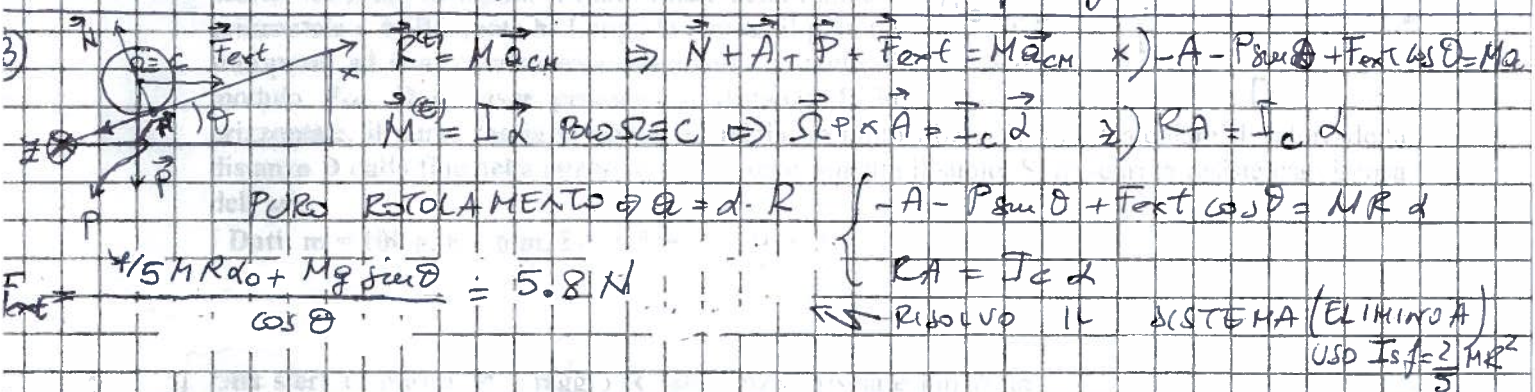 3) N C≡Ω F⃗ext x R⃗^(E) = M a⃗CM ⇒ N⃗ + A⃗ + P⃗ + F⃗ext = M a⃗CM x) -A - P sin θ + Fext cos θ = Ma
z ⊗ θ A P⃗ M⃗^(E) = I α⃗ POLO Ω≡C ⇒ Ω⃗P × A⃗ = I_C α⃗ z) RA = I_C α
P PURO ROTOLAMENTO ⇒ a = α · R { -A - P sin θ + Fext cos θ = MR α
Fext = (7/5 MRα₀ + Mg sin θ) / cos θ = 5.8 N RA = I_C α
RISOLVO IL SISTEMA (ELIMINO A)
USO Isf = 2/5 MR²